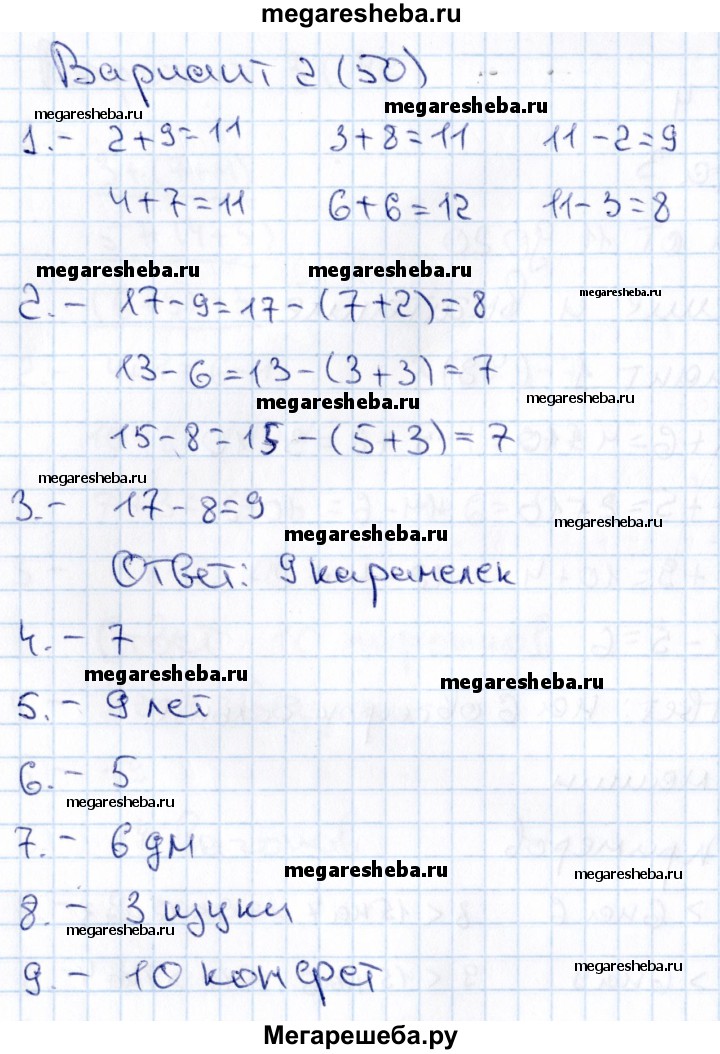 megaresheba.ru
Вариант 2 (50)
megaresheba.ru
megaresheba.ru
1.- 2+9=11 3+8=11 11-2=9
4+7=11 6+6=12 11-3=8
megaresheba.ru megaresheba.ru
megaresheba.ru
2.- 17-9=17-(7+2)=8
13-6=13-(3+3)=7
megaresheba.ru megaresheba.ru
15-8=15-(5+3)=7
megaresheba.ru
3.- 17-8=9
megaresheba.ru megaresheba.ru
Ответ: 9 карамелек
4.- 7
megaresheba.ru megaresheba.ru
5.- 9 лет
6.- 5
megaresheba.ru
7.- 6 дм
megaresheba.ru megaresheba.ru
8.- 3 щуки
megaresheba.ru
9.- 10 конфет
megaresheba.ru
Мегарешеба.ру